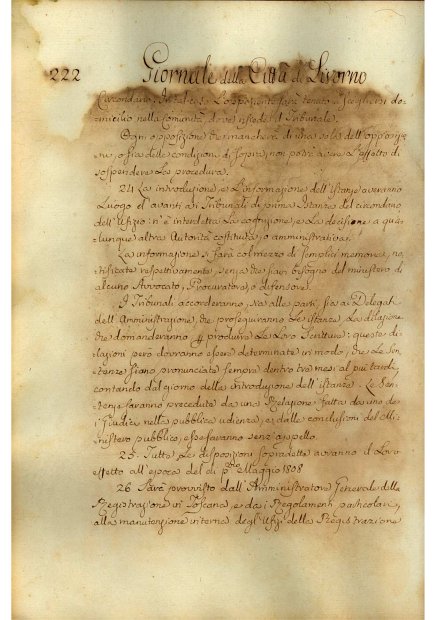 222 Giornale della Città di Livorno
Circondario; In tal caso L'opponente sarà tenuto a scegliersi do-
micilio nella Comunità, dove risiede il Tribunale.
Ogni opposizione che mancherà di una sola dell'apposizio-
ni, o sia delle condizioni di sopra, non potrà avere L'effetto di
sospendere La procedura.
24 La introduzione, e L'informazione dell'istanze averanno
Luogo davanti ai Tribunali di prima istanza del circondario
dell'Ufizio: n'è interdetta La cognizione, e La decisione a qua-
lunque altra Autorità costituita, o amministrativa.
La informazione si farà col mezzo di semplici memorie, no-
tificate respettivamente, senza che siavi bisogno del ministero di
alcuno Avvocato, Procuratore, o difensore.
I Tribunali accorderanno, sia alle parti, sia ai Delegati
dell'Amministrazione, che proseguiranno Le istanze, La dilazione
che domanderanno p produrre Le Loro Scritture: queste di-
lazioni però dovranno essere determinate in modo, che Le Sen-
tenze siano pronunciate sempre dentro tre mesi al più tardi,
contando dal giorno della introduzione dell'istanze. Le Sen-
tenze saranno precedute da una Relazione fatta da uno dei
Giudici nella pubblica udienza, e dalle conclusioni del Mi-
nistero pubblico, e saranno senz'appello.
25. Tutte Le disposizioni sopradette avranno il Loro
effetto all'epoca del dì p.mo Maggio 1808
26. Sarà provvisto dall'Amministratore Generale della
Registrazione in Toscana, e dai Regolamenti particolari,
alla manutenzione interna degl'Ufizi della Registrazione